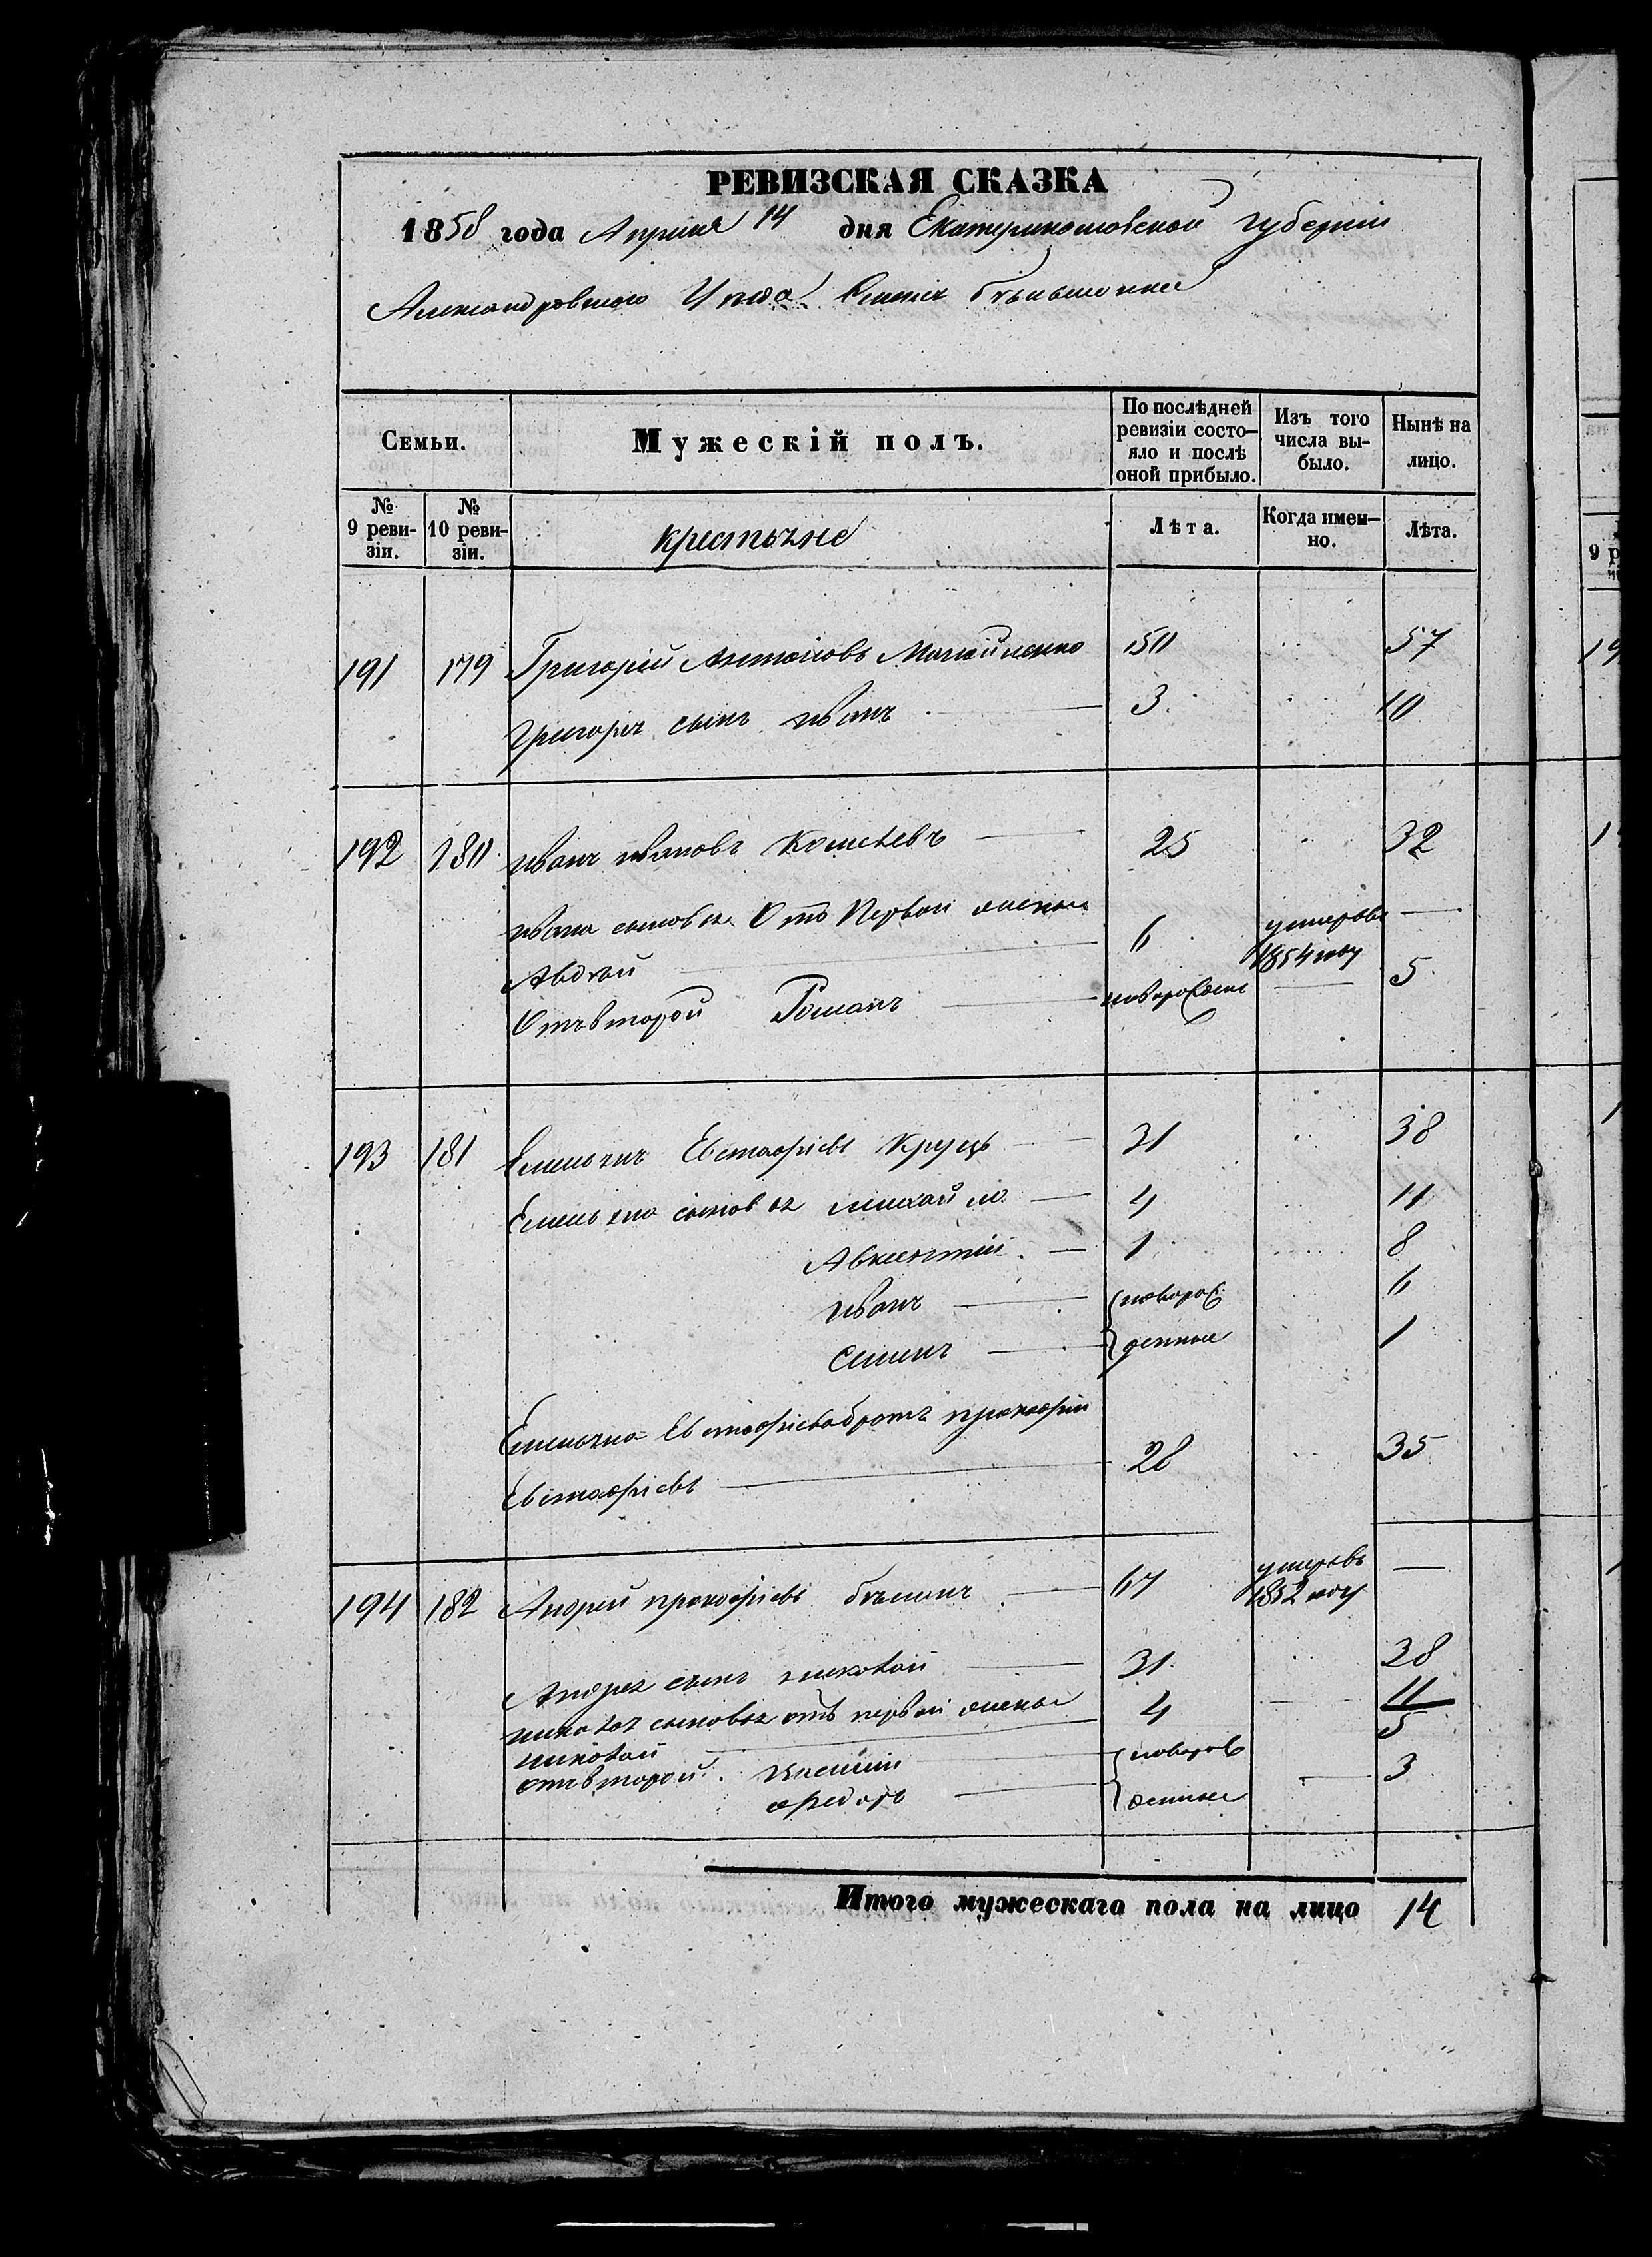 РЕВИЗСКАЯ СКАЗКА
1858 года Апреля 14 дня Екатеринославской губернии
Александровского Уезда
Семьи. Мужескій полъ. По послѣдней ревизіи состояло и послѣ оной прибыло. Изъ того числа выбыло. Нынѣ на лицо.
№ 9 ревизіи. № 10 ревизіи. крестьяне Лѣта. Когда именно. Лѣта.
191 179 Григорій Антоновъ 50 57
Григорія сынъ иванъ 3. 10
192 180 иванъ ивановъ 25 32
ивана сыновья Отъ Первой жены
Авдѣй 6 умеръ въ 1854 году
Отъ второй Романъ новорожден 5
193 181 Емельянъ Евстафіевъ 31 38
Емельяна сыновья михайло 4 11
Авксентий 1 8
иванъ новорож 6
Семенъ денные 1
Емельяна Евстафіева братъ прокофий
Евстафіевъ 28 35
194 182 Андрей прокофіевъ 67 умеръ въ 1852 году
Андрея сынъ николай 31. 38
николая сыновья отъ первой жены 4 11
николай 5
отъ второй. новорож
федоръ денные 3
Итого мужескаго пола на лицо 14